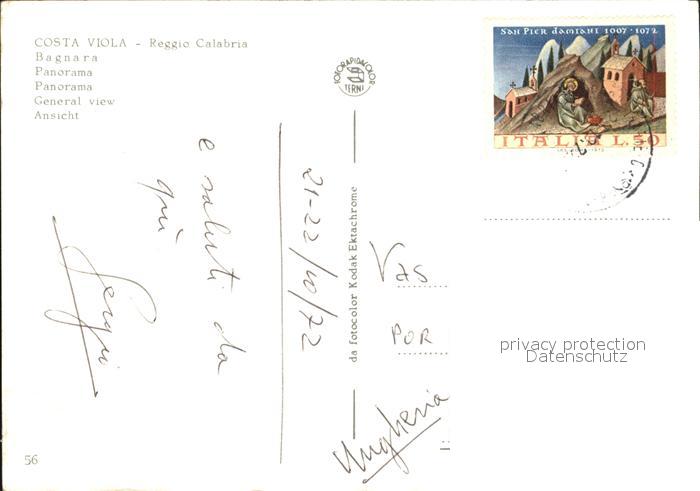 COSTA VIOLA - Reggio Calabria
Bagnara
Panorama
Panorama
General view
Ansicht
e saluti da
qui
Sergio
56
21-22/10/72
da fotocolor Kodak Ektachrome
FOTORAPIDACOLOR
TERNI
SAN PIER DAMIANI 1007·1072
ITALIA L.50
VAS
POR
Ungheria
privacy protection
Datenschutz